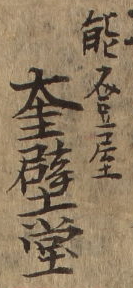 能登屋
奎壁堂